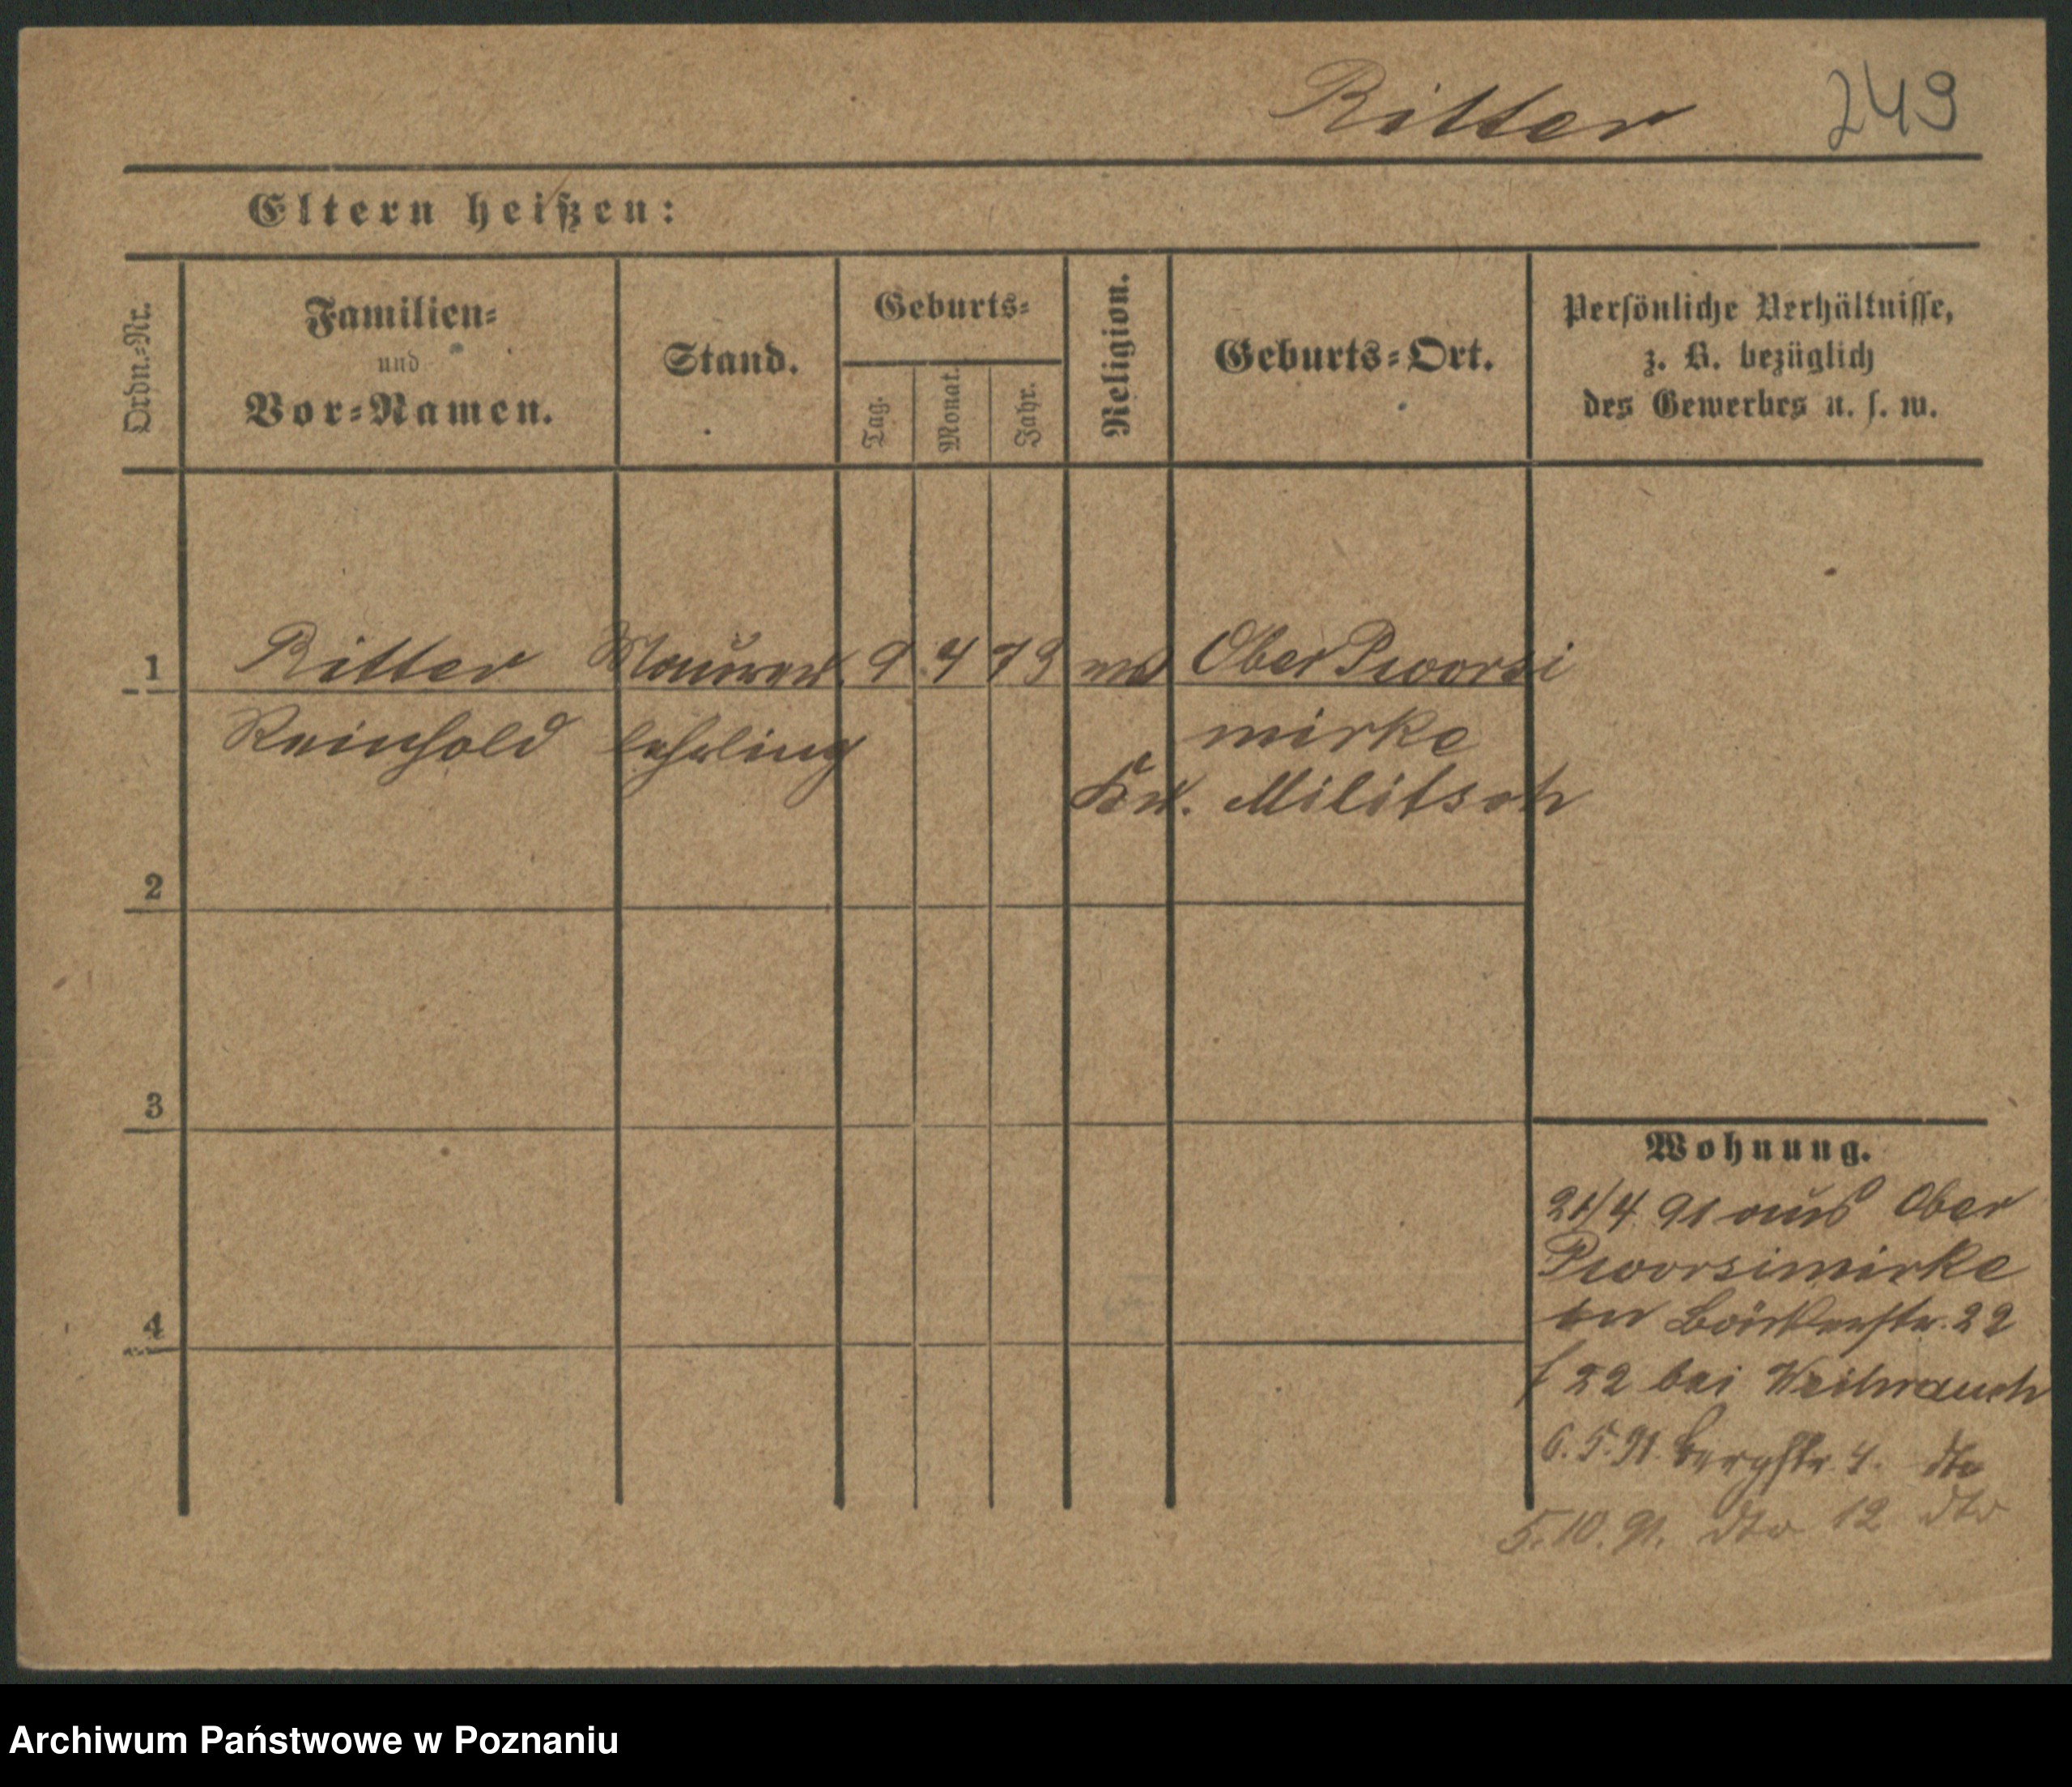 Ritter 249
Eltern heißen:
Ordn.-Nr.
Familien-
und
Vor-Namen.
Stand.
Geburts-
Tag.
Monat.
Jahr.
Religion.
Geburts-Ort.
Persönliche Verhältnisse,
z. B. bezüglich
des Gewerbes u. s. w.
1 Ritter Maurer 9 4 73 Ober Pworsi
Reinhold lehrling mirke
Kr. Militsch
2
3
4
Wohnung.
21/4 91 aus Ober
Pworsimirke
Bäckerstr. 22
f 22 bei Weihrauch
6. 5. 91. Bergstr 4. dto
5. 10. 91. dto 12 dto
Archiwum Państwowe w Poznaniu